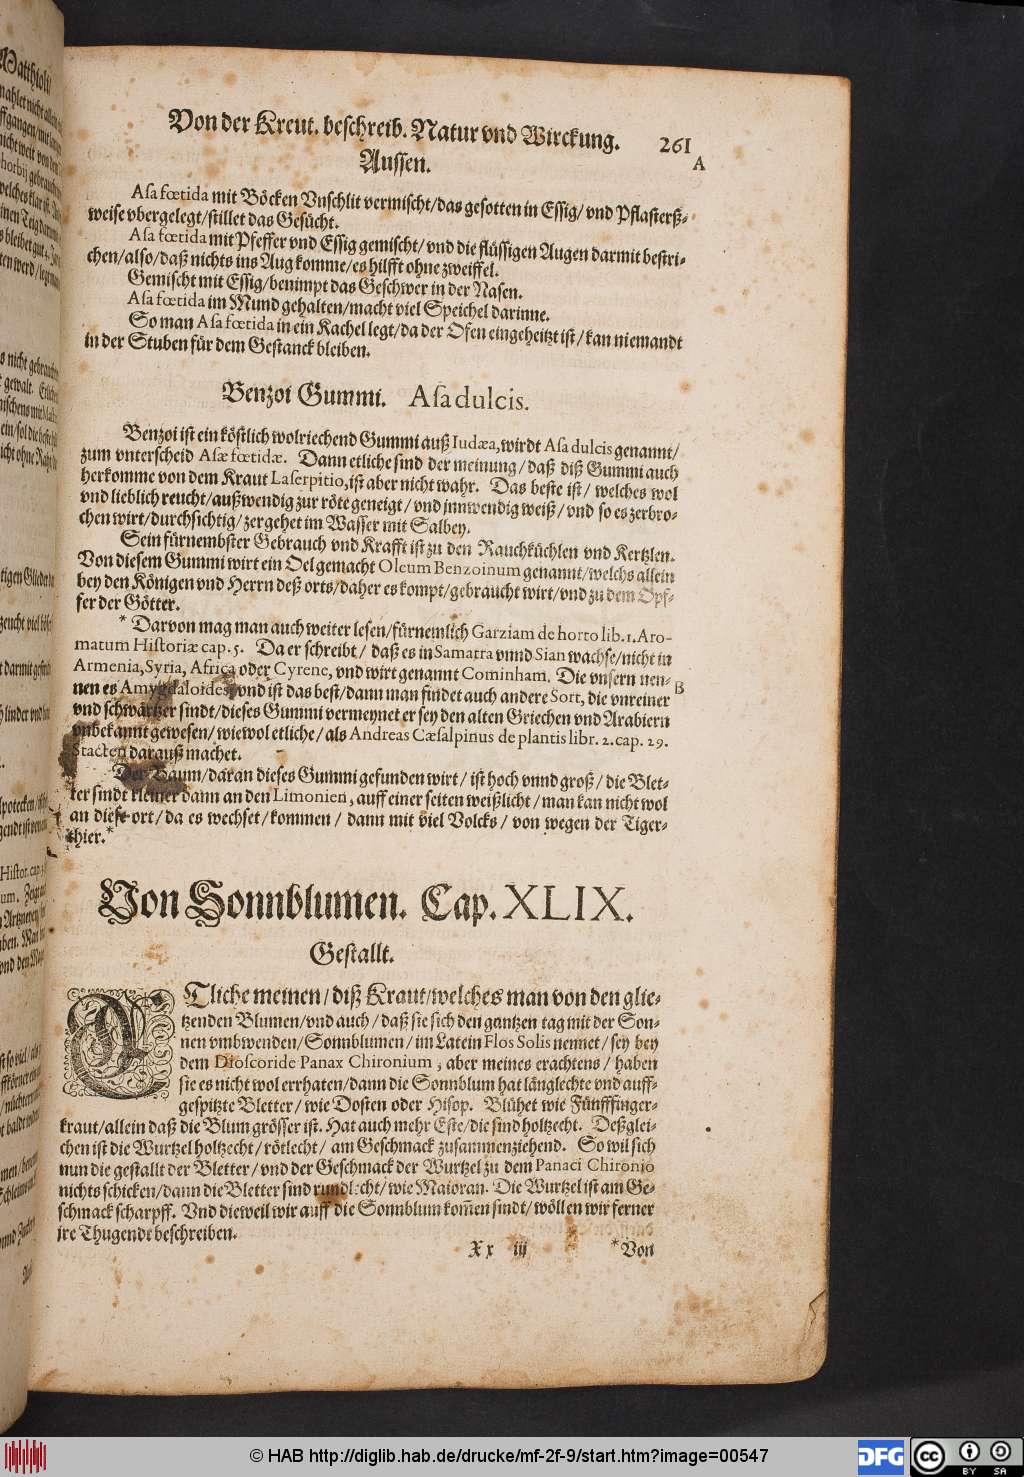 Von der Kreut. beschreib. Natur vnd Wirckung. 261
Aussen. A
Asa fœtida mit Böcken Vnschlit vermischt/das gesotten in Essig/ vnd Pflasterß-
weise vbergelegt/stillet das Gesücht.
Asa fœtida mit Pfeffer vnd Essig gemischt/ vnd die flüssigen Augen darmit bestri-
chen/also/daß nichts ins Aug komme/es hilfft ohne zweiffel.
Gemischt mit Essig/benimpt das Geschwer in der Nasen.
Asa fœtida im Mund gehalten/macht viel Speichel darinne.
So man Asa fœtida in ein Kachel legt/da der Ofen eingeheitzt ist/kan niemandt
in der Stuben für dem Gestanck bleiben.
Benzoi Gummi. Asa dulcis.
Benzoi ist ein köstlich wolriechend Gummi auß Iudæa, wirdt Asa dulcis genannt/
zum vnterscheid Asæ fœtidæ. Dann etliche sind der meinung/daß diß Gummi auch
herkomme von dem Kraut Laserpitio, ist aber nicht wahr. Das beste ist/ welches wol
vnd lieblich reucht/außwendig zur röte geneigt/vnd jnnwendig weiß/vnd so es zerbro-
chen wirt/durchsichtig/zergehet im Wasser mit Salbey.
Sein fürnembster Gebrauch vnd Krafft ist zu den Rauchküchlen vnd Kertzlen.
Von diesem Gummi wirt ein Oel gemacht Oleum Benzoinum genannt/welchs allein
bey den Königen vnd Herrn deß orts/daher es kompt/gebraucht wirt/vnd zu dem Opf-
fer der Götter.
* Darvon mag man auch weiter lesen/fürnemlich Garziam de horto lib. 1. Aro-
matum Historiæ cap. 5. Da er schreibt/ daß es in Samatra vnnd Sian wachse/nicht in
Armenia, Syria, Africa oder Cyrene, vnd wirt genannt Cominham. Die vnsern nen-
nen es Amygdaloides, vnd ist das best/dann man findet auch andere Sort, die vnreiner B
vnd schwärtzer sindt/dieses Gummi vermeynet er sey den alten Griechen vnd Arabiern
vnbekannt gewesen/ wiewol etliche/ als Andreas Cæsalpinus de plantis libr. 2. cap. 29.
Stacten darauß machet.
Der Baum/daran dieses Gummi gefunden wirt/ ist hoch vnnd groß/ die Blet-
ter sindt kleiner dann an den Limonien, auff einer seiten weißlicht/man kan nicht wol
an diese ort/da es wechset/kommen/ dann mit viel Volcks/ von wegen der Tiger-
thier.*
Von Sonnblumen. Cap. XLIX.
Gestallt.
ETliche meinen/ diß Kraut/welches man von den glie-
tzenden Blumen/vnd auch/daß sie sich den gantzen tag mit der Son-
nen vmbwenden/Sonnblumen/im Latein Flos Solis nennet/ sey bey
dem Dioscoride Panax Chironium, aber meines erachtens/ haben
sie es nicht wol errhaten/dann die Sonnblum hat länglechte vnd auff-
gespitzte Bletter/wie Dosten oder Hisop. Blühet wie Fünfffinger-
kraut/allein daß die Blum grösser ist. Hat auch mehr Este/die sind holtzecht. Deßglei-
chen ist die Wurtzel holtzecht/ rötlecht/ am Geschmack zusammenziehend. So wil sich
nun die gestallt der Bletter/vnd der Geschmack der Wurtzel zu dem Panaci Chironio
nichts schicken/dann die Bletter sind rundlecht/wie Maioran. Die Wurtzel ist am Ge-
schmack scharpff. Vnd dieweil wir auff die Sonnblum kom̃en sindt/wöllen wir ferner
jre Thugendt beschreiben.
Xx iij *Von
© HAB http://diglib.hab.de/drucke/mf-2f-9/start.htm?image=00547
DFG cc BY SA